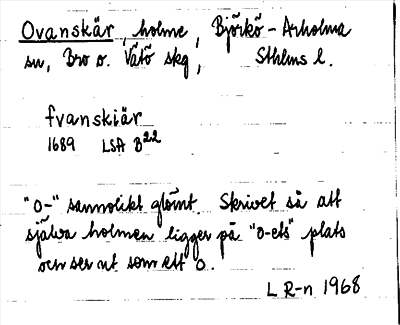 Ovanskär, holme, Björkö-Arholma
sn, Bro o. Vätö skg, Sthlms l.
fvanskiär
1689 LSA B22
"O-" sannolikt glömt. Skrivet så att
själva holmen ligger på "o-ets" plats
och ser ut som ett o.
L R-n 1968